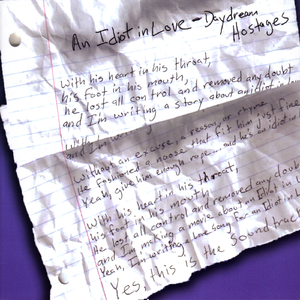 An Idiot in Love - Daydream
Hostages
With his heart in his throat,
his foot in his mouth,
he lost all control and removed any doubt
and I'm writing a story about an idiot in
Without an excuse, a reason, or rhyme
He fashioned a noose that fit him just fine
Yeah, give him enough rope and he's an idiot in
With his heart in his throat,
his foot in his mouth
He lost all control and removed any doubt
and I'm making a movie about an idiot in
Yeah, I'm writing a love song for an idiot in
Yes, this is the soundtrac